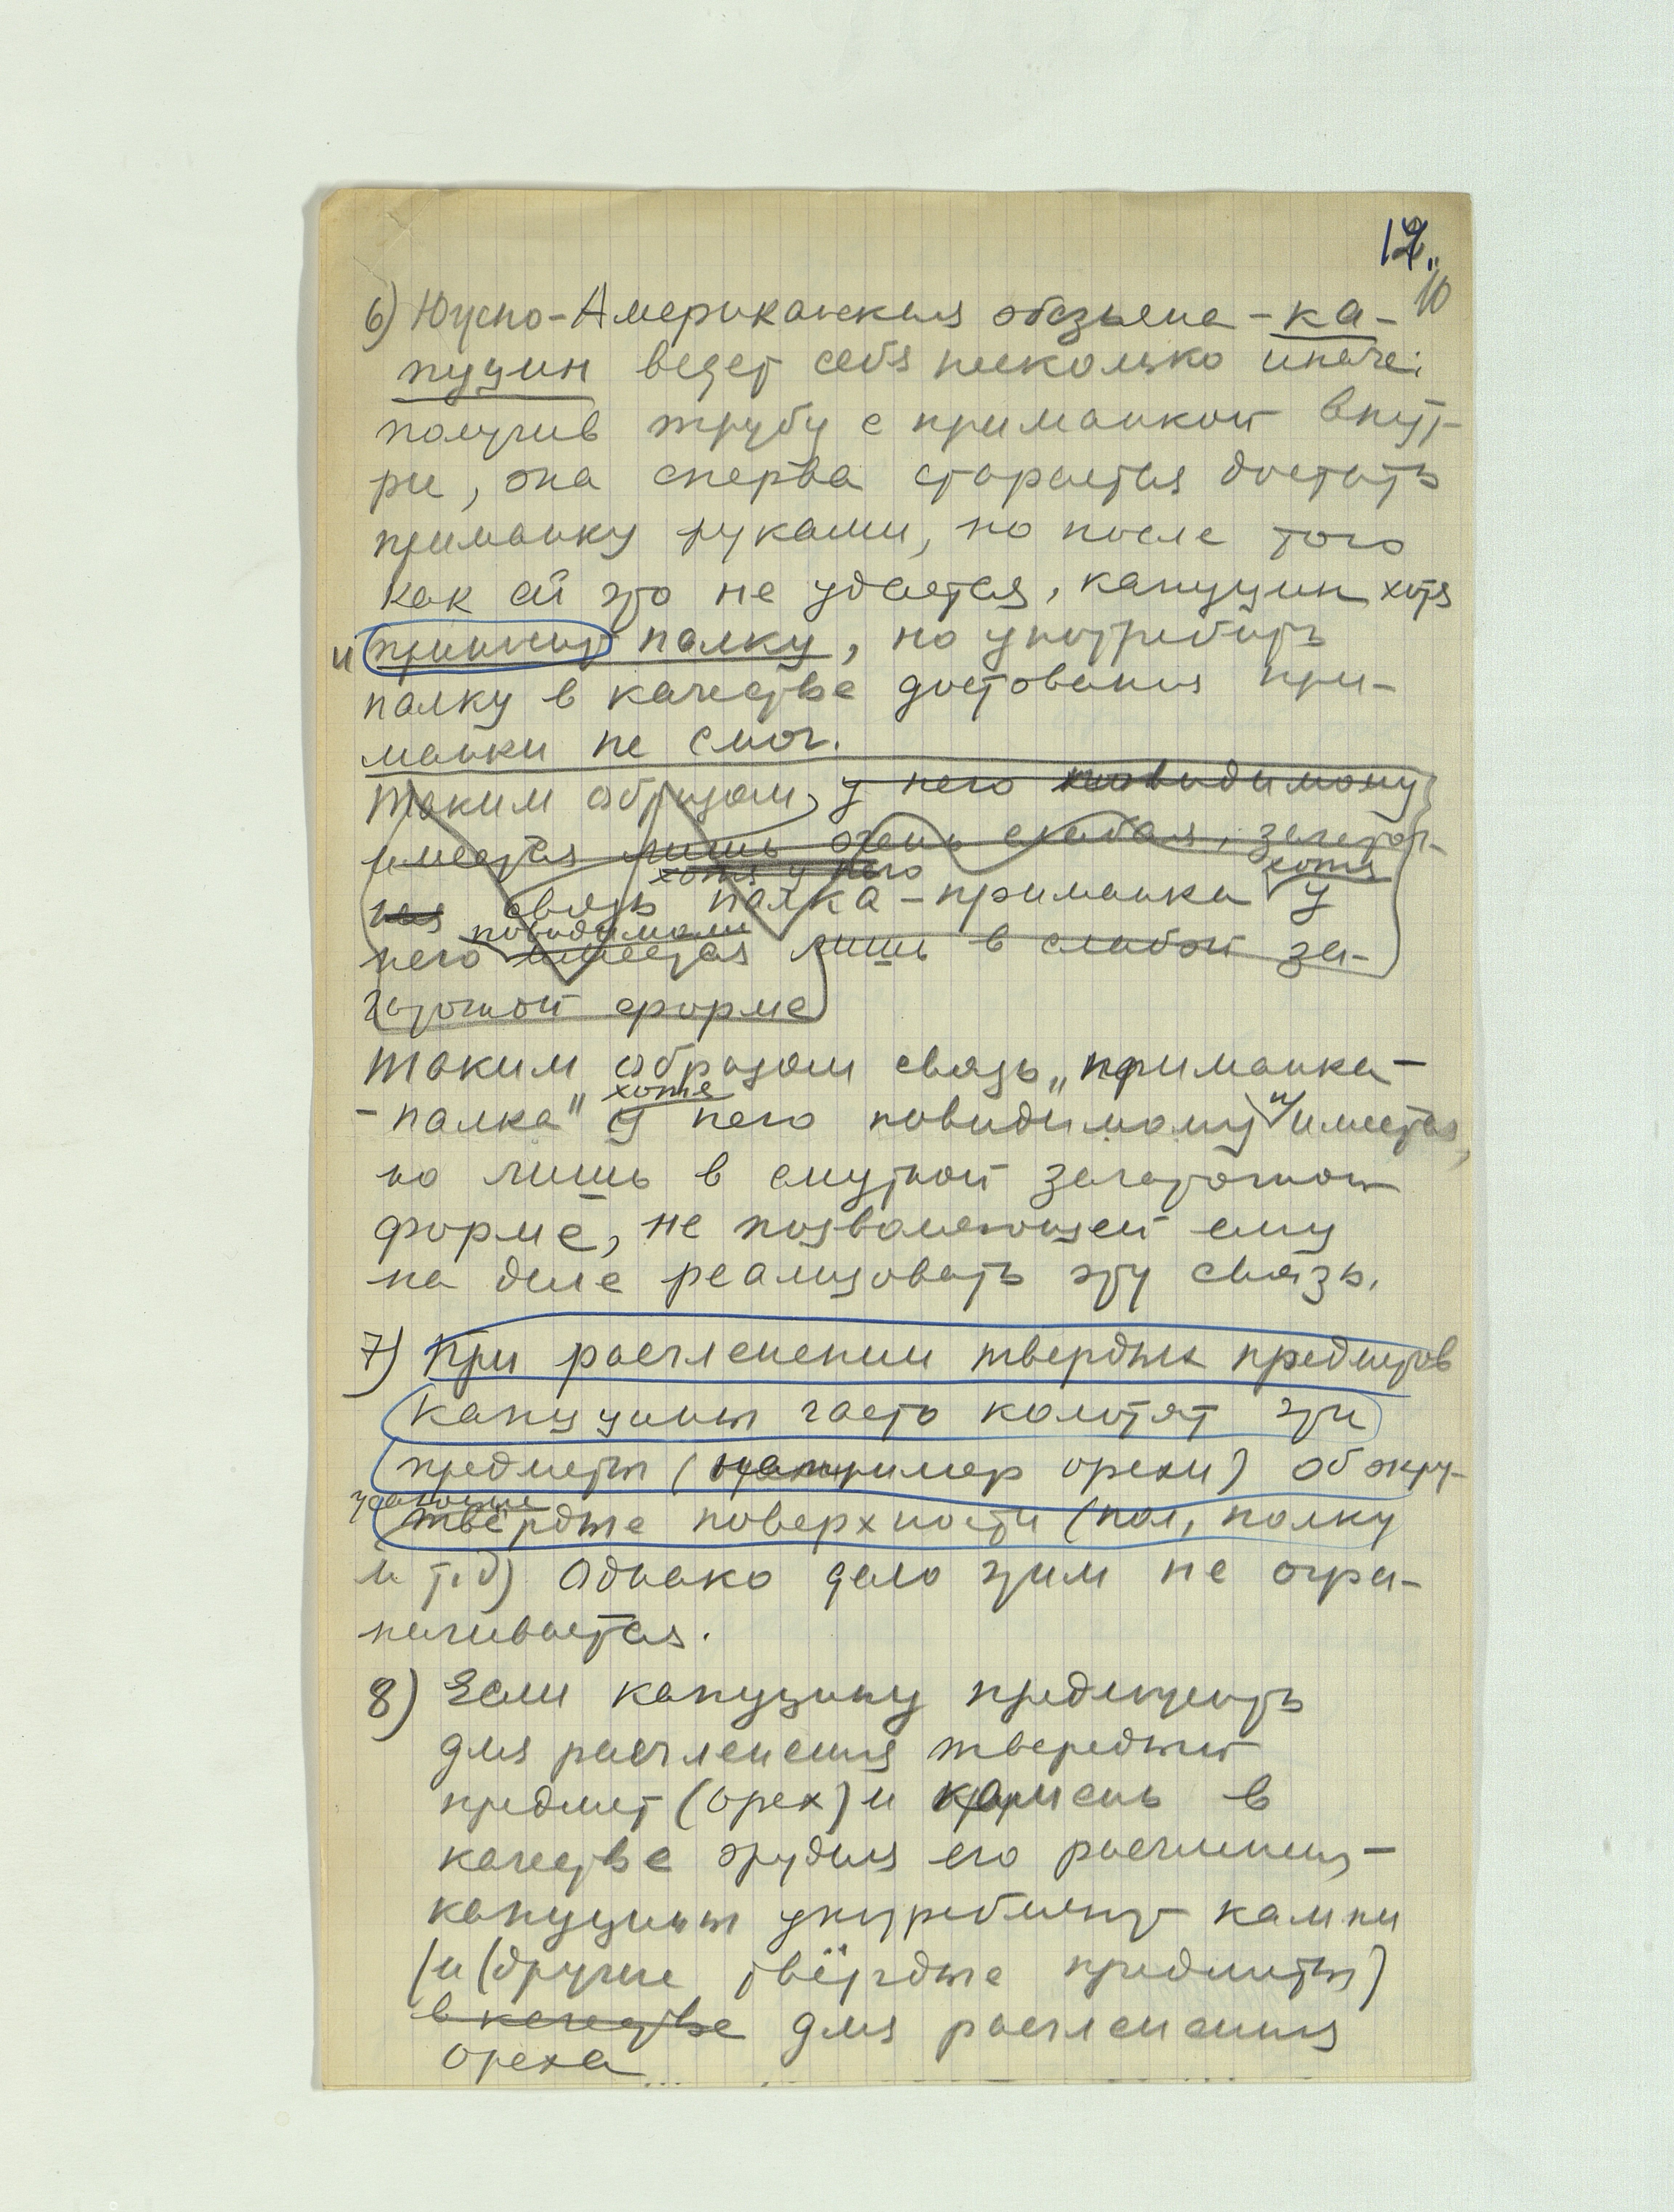 12.
10
6) Южно-Американская обезьяна - ка-
пуцин ведет себя несколько иначе:
получив трубу с приманкой внут-
ри, она сперва старается достать
приманку руками, но после того
как ей это не удается, капуцин хотя
и принимает палку, но употребить
палку в качестве доставания при-
манки не смог.
Таким образом, у него повидимому
имеется лишь очень слабая, зачаточ-
ная связь палка - приманка хотя у
хотя у него
него имеется лишь в слабой за-
повидимому
чаточной форме
Таким образом связь „приманка-
- палка" хотя у него повидимому и имеется,
но лишь в смутной зачаточной
форме, не позволяющей ему
на деле реализовать эту связь.
7) При расчленении твердых предметов
капуцины часто колотят эти
предметы (например орехи) об окру-
жающие
твёрдые поверхности (пол, полку
и т.д) Однако дело этим не огра-
ничивается.
8) Если капуцину предложить
для расчленения твердый
предмет (орех) и камень в
качестве орудия его расчленения-
капуцины употребляют камни
(и (другие твёрдые предметы)
в качестве для расчленения
ореха